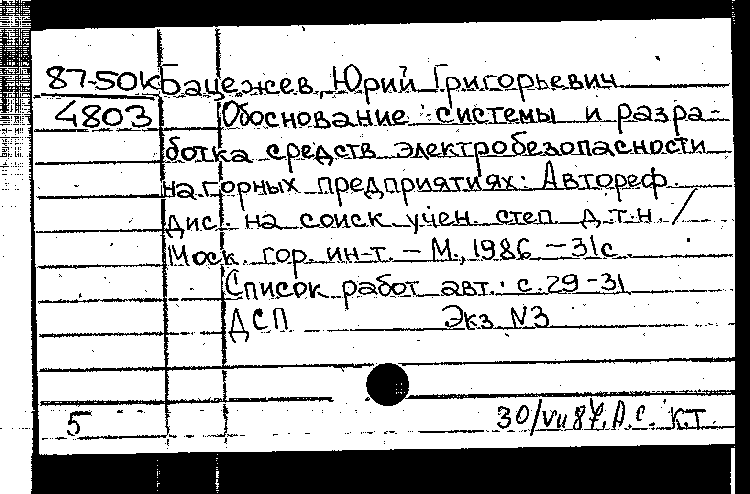 87-50К Бацежев, Юрий Григорьевич
4803 Обоснование системы и разра-
ботка средств электробезопасности
на горных предприятиях: Автореф.
дис. на соиск. учен. степ. д.т.н. /
Моск. гор. ин-т. - М., 1986 - 31с.
Список работ авт.: с. 29-31
ДСП Экз. N3
5 30/VII 87. А.С. К.Т.